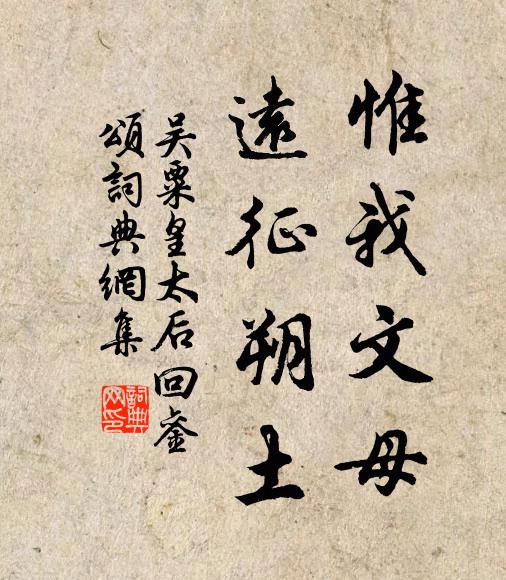 惟我文母
遠征朔土
吴粟皇太后回銮
頌詞典網集
詞典网印